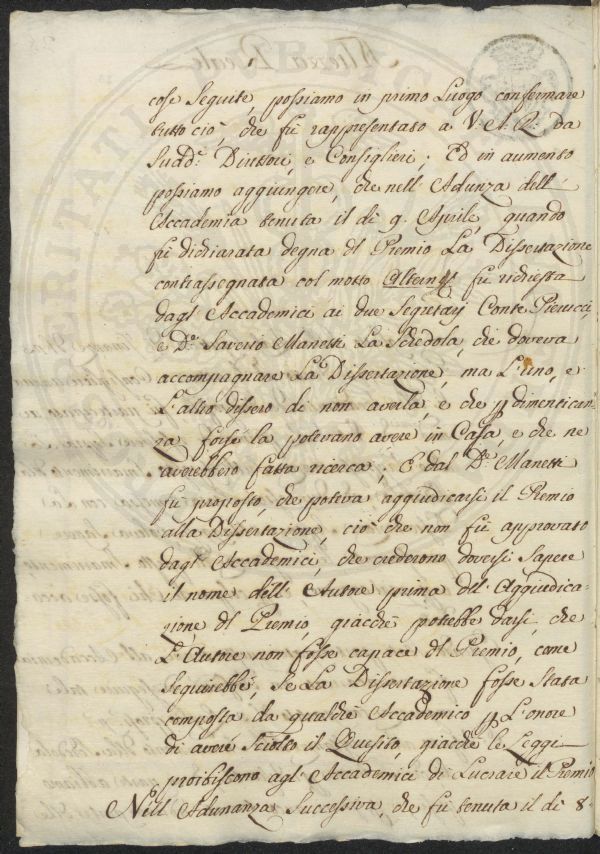 cose Seguite, possiamo in primo Luogo confermare
tutto ciò, che fù rappresentato a V. A. R. da
Sudd.i Direttori, e Consiglieri; Ed in aumento
possiamo aggiungere, che nell' Adunza dell'
Accademia tenuta il dì 9. Aprile, quando
fù dichiarata degna del Premio La Dissertazione
contrassegnata col motto fù richiesta
dagl' Accademici ai due Segretarj Conte Pierucci,
e D.r Saverio Manetti La Schedola, che doveva
accompagnare La Dissertazione, ma L'uno, e
L'altro dissero di non averla, e che p dimentican-
za forse la potevano avere in Casa, e che ne
averebbero fatta ricerca; E dal D.r Manetti
fù proposto, che poteva aggiudicarsi il Premio
alla Dissertazione, ciò che non fù approvato
dagl' Accademici, che crederono doversi Sapere
il nome dell' Autore prima del Aggiudica-
zione del Premio, giacchè potrebbe darsi, che
L'Autore non fosse capace del Premio, come
Seguirebbe, Se La Dissertazione fosse Stata
composta da qualche Accademico p L'onore
di avere Sciolto il Quesito, giacchè le Leggi
proibiscono agl' Accademici di Lucrare il Premio
Nell' Adunanza Successiva, che fù tenuta il dì 8.